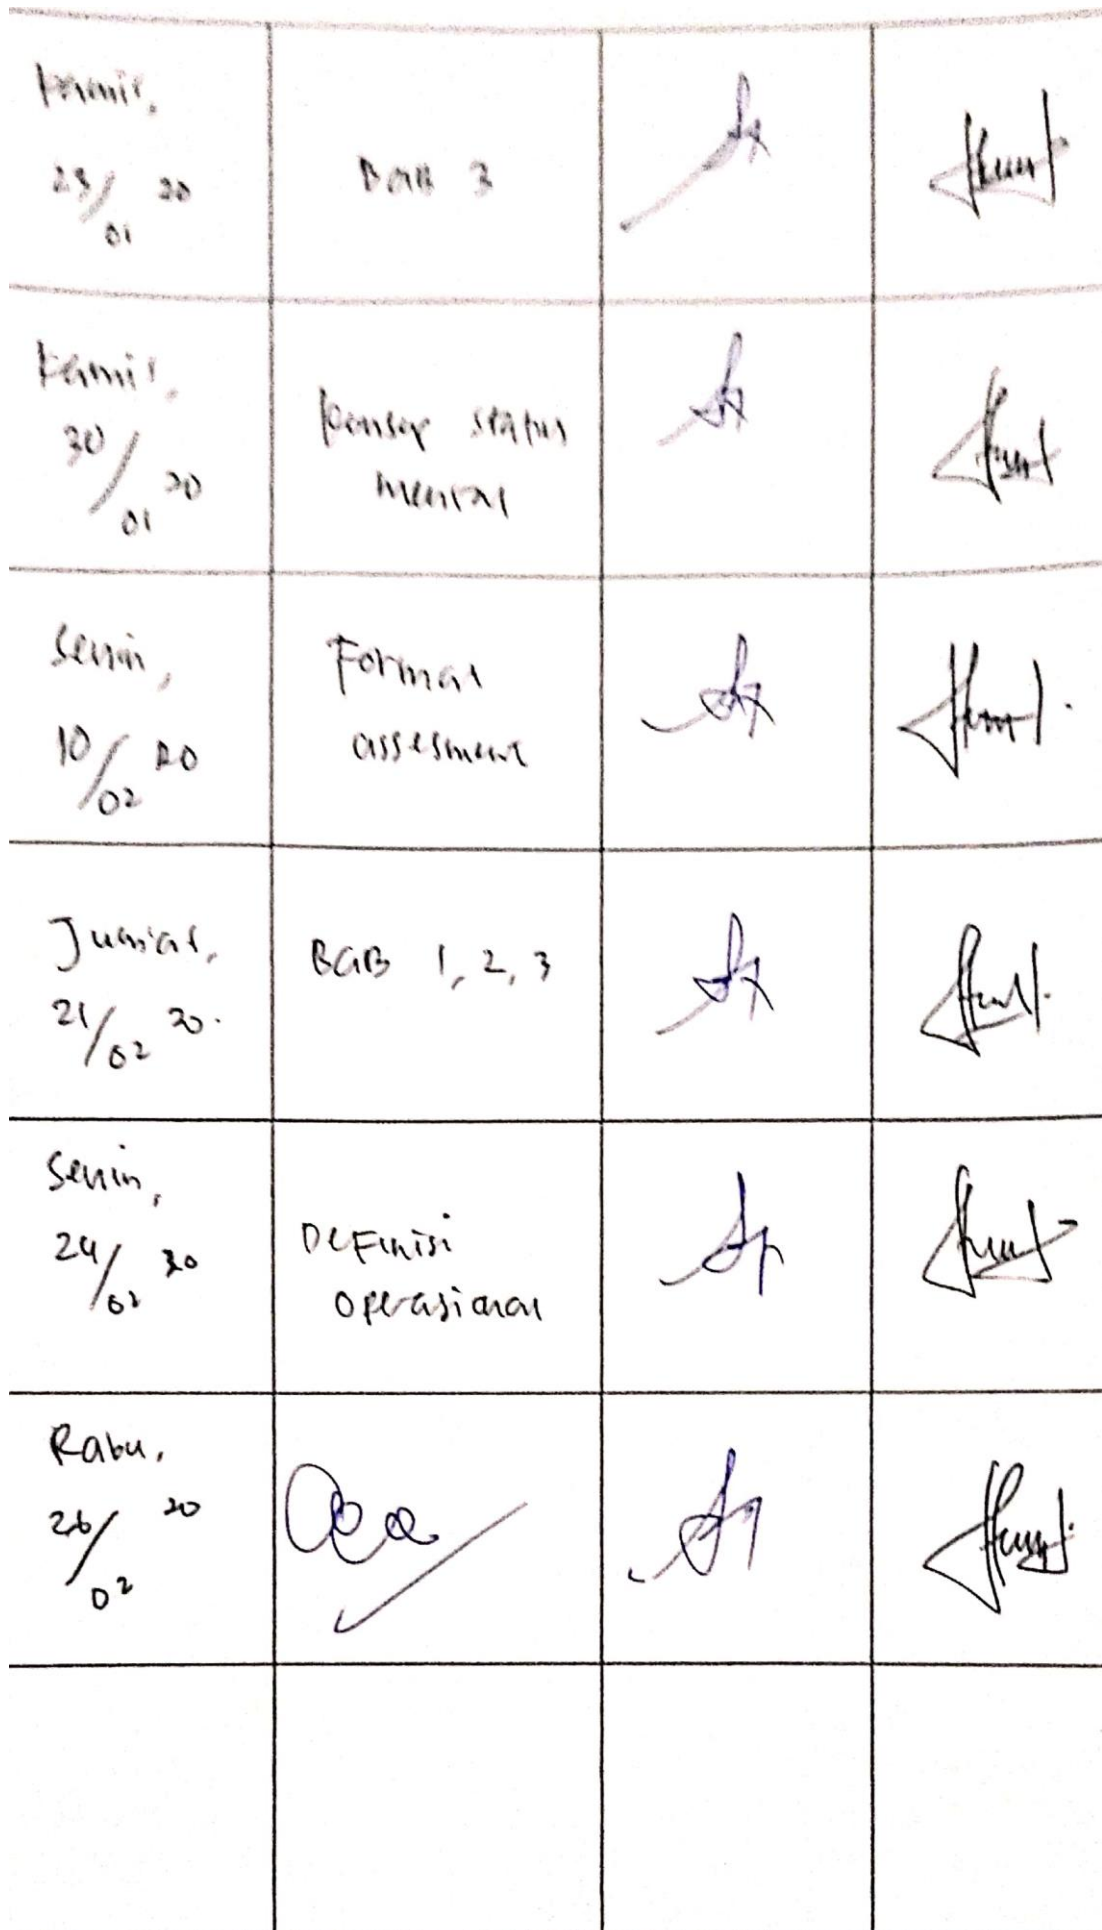 Kamis,
23/01 20
BAB 3
Kamis,
30/01 20
konsep status
mental
Senin,
10/02 20
Format
assesment
Jumat,
21/02 20.
BAB 1, 2, 3
Senin,
24/02 20
Definisi
operasional
Rabu,
26/02 20
Acc